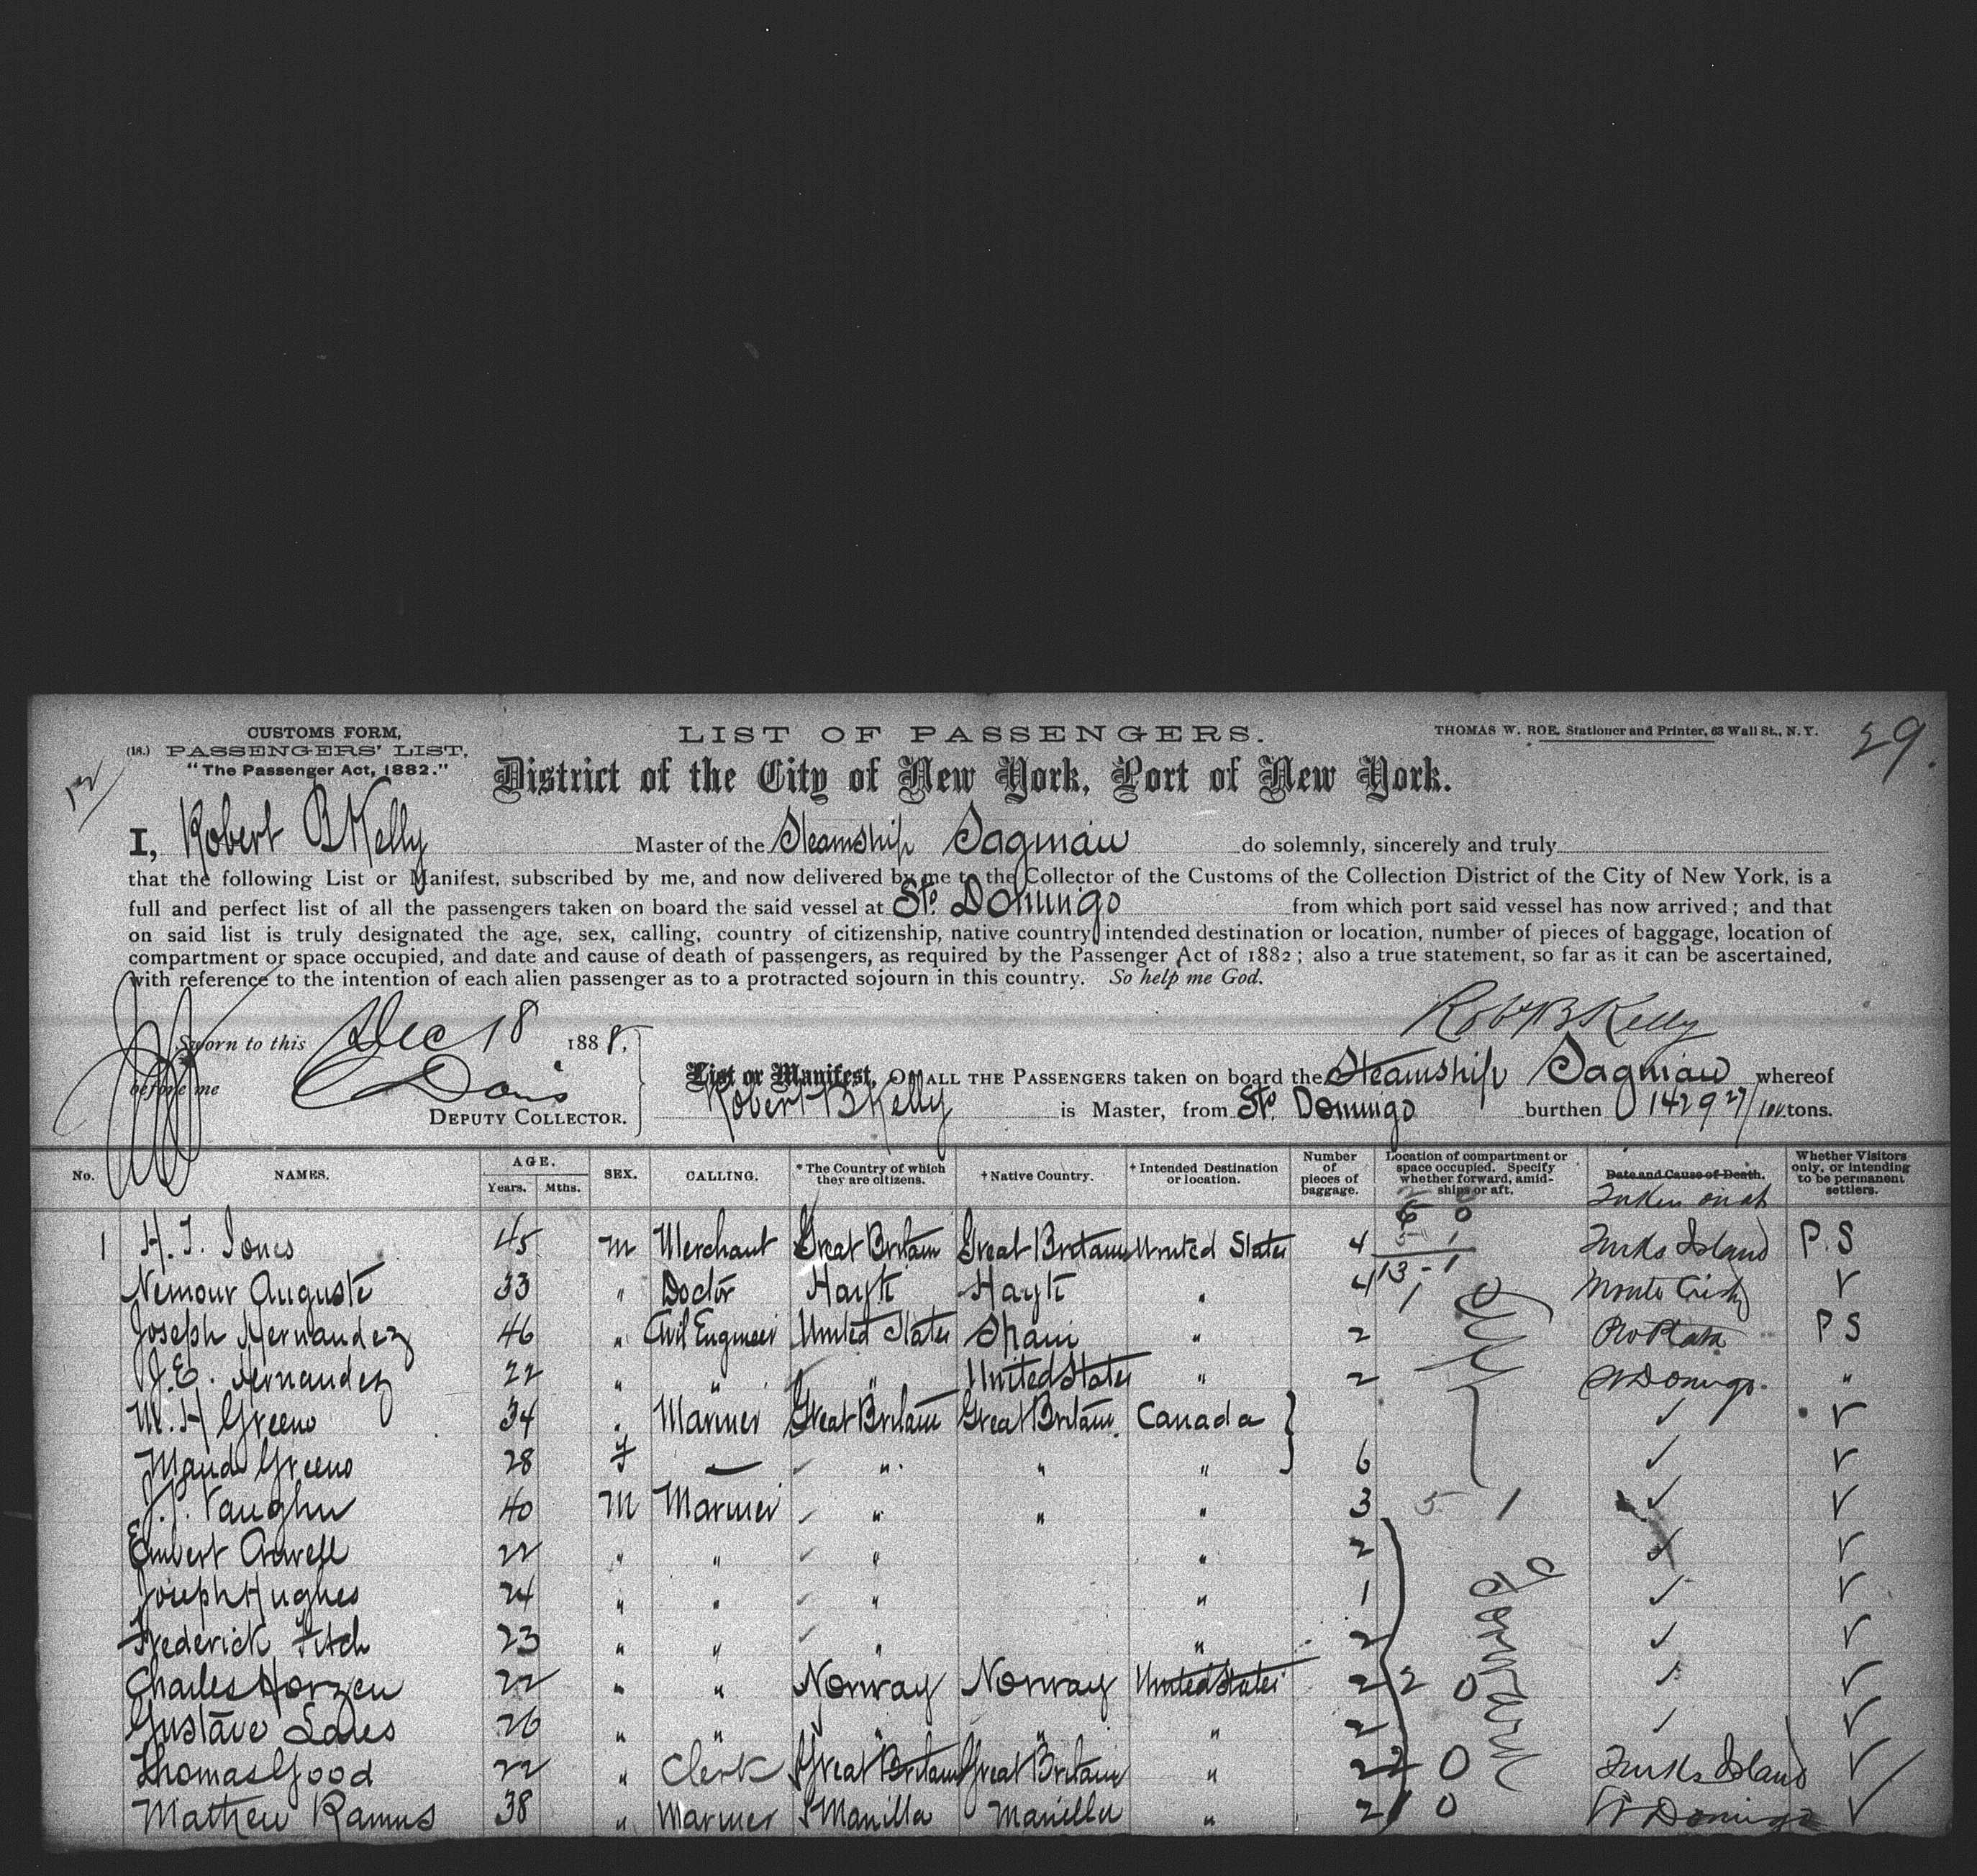 CUSTOMS FORM,
(18.) PASSENGERS' LIST,
"The Passenger Act, 1882."
LIST OF PASSENGERS.
THOMAS W. ROE, Stationer and Printer, 63 Wall St., N. Y.
29.
District of the City of New York, Port of New York.
I, Robert B Kelly Master of the Steamship Saginaw do solemnly, sincerely and truly
that the following List or Manifest, subscribed by me, and now delivered by me to the Collector of the Customs of the Collection District of the City of New York, is a
full and perfect list of all the passengers taken on board the said vessel at Sto. Domingo from which port said vessel has now arrived; and that
on said list is truly designated the age, sex, calling, country of citizenship, native country intended destination or location, number of pieces of baggage, location of
compartment or space occupied, and date and cause of death of passengers, as required by the Passenger Act of 1882; also a true statement, so far as it can be ascertained,
with reference to the intention of each alien passenger as to a protracted sojourn in this country. So help me God.
Robt B Kelly
Sworn to this Dec 18 1888,
before me
DEPUTY COLLECTOR.
List or Manifest, OF ALL THE PASSENGERS taken on board the Steamship Saginaw whereof
Robert B Kelly is Master, from Sto. Domingo burthen 1429 27/100 tons.
No. NAMES. AGE. Years. Mths. SEX. CALLING. * The Country of which they are citizens. † Native Country. † Intended Destination or location. Number of pieces of baggage. Location of compartment or space occupied. Specify whether forward, amidships or aft. Date and Cause of Death. Taken on at Whether Visitors only, or intending to be permanent settlers.
6 0
5 1
1 H. T. Jones 45 M Merchant Great Britain Great Britain United States 4 13 - 1 Turks Island P. S
Nemour Auguste 33 " Doctor Hayti Hayti " 4 1 0 Monte Cristy ✓
Joseph Hernandez 46 " Civil Engineer United States Spain " 2 Pto Plata P S
J. E. Hernandez 22 " " " United States " 2 St Domingo. "
M. H Greeno 34 " Mariner Great Britain Great Britain. Canada ✓ ✓
Maud Greeno 28 F — " " " 6 ✓ ✓
J. P. Vaughn 40 M Mariner " " " 3 5 1 ✓ ✓
Embert 22 " " " " 2 ✓ ✓
Joseph Hughes 24 " " " " 1 ✓ ✓
Frederick Fitch 23 " " " " 2 ✓ ✓
Charles 22 " " Norway Norway United States 2 2 0 Forward ✓ ✓
Gustave 26 " " " " " 2 ✓ ✓
Thomas Good 22 " Clerk Great Britain Great Britain " 2 2 0 Turks Island ✓
Mathew Ramus 38 " Mariner Manilla Manilla " 2 1 0 St Domingo ✓